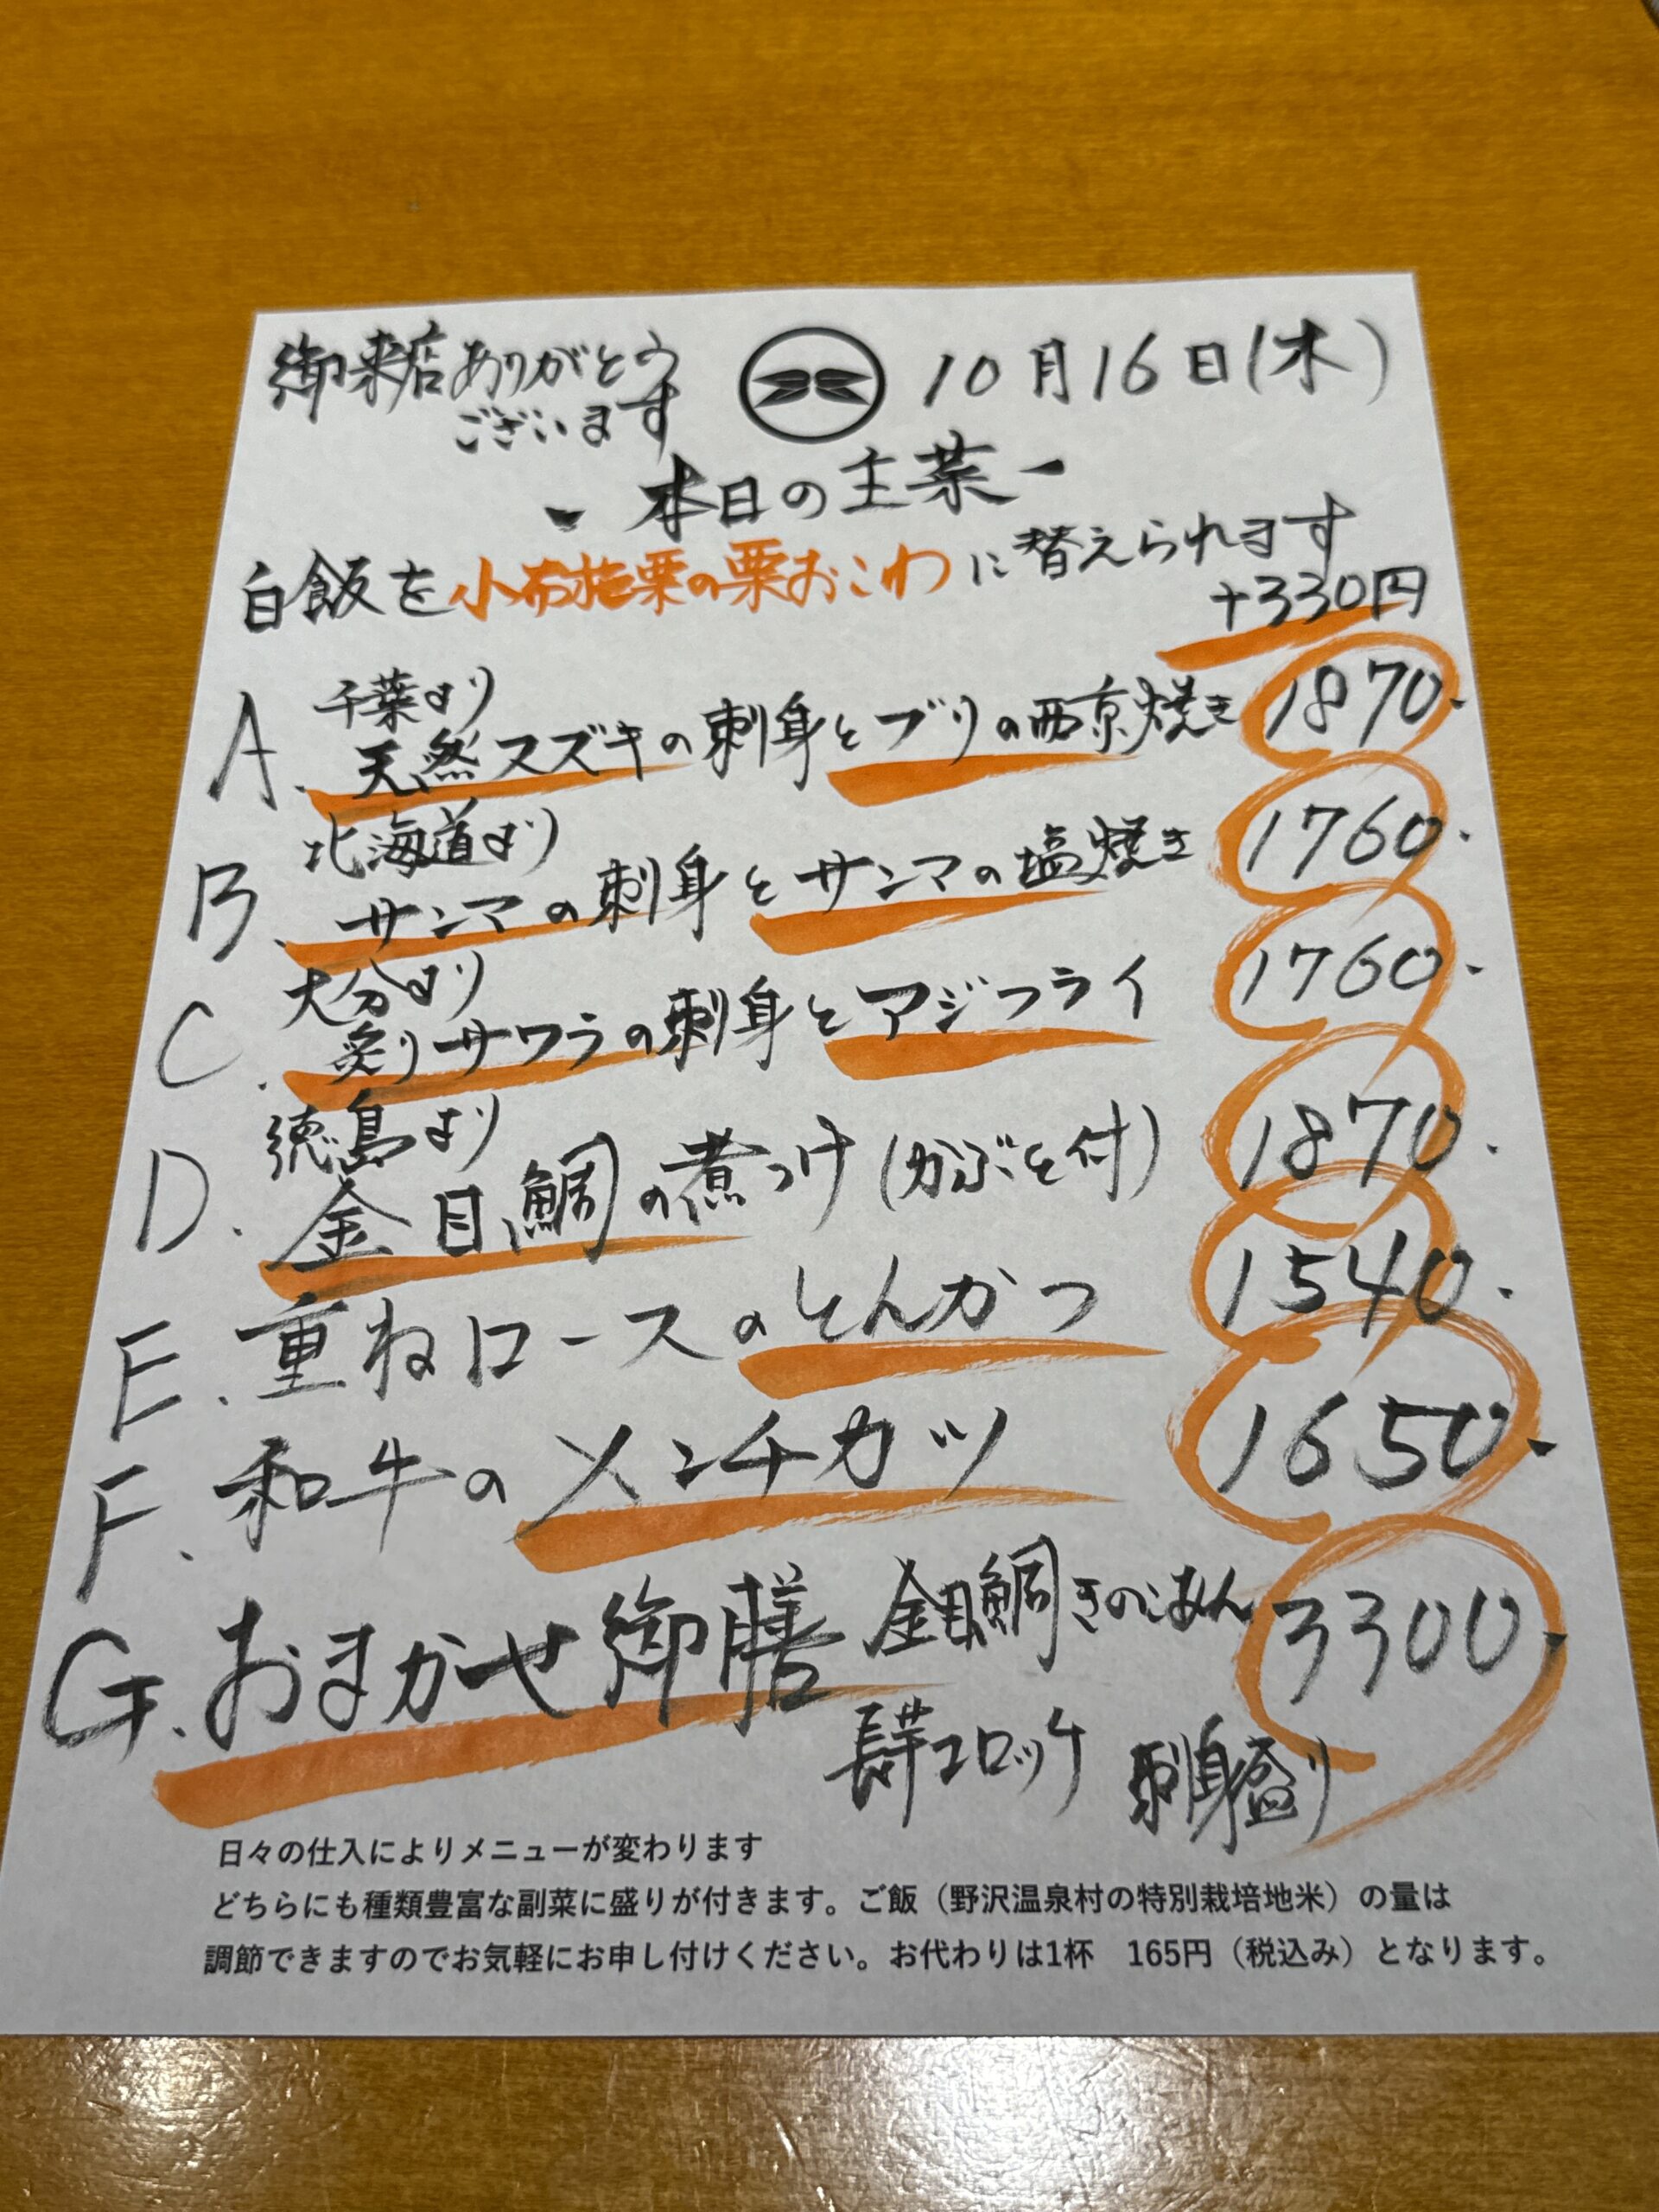 御来店ありがとう
ございます
10月16日(木)
- 本日の主菜 -
白飯を小布施栗の栗おこわに替えられます
+330円
千葉より
A. 天然スズキの刺身とブリの西京焼き 1870.
北海道より
B. サンマの刺身とサンマの塩焼き 1760.
大分より
C. 炙りサワラの刺身とアジフライ 1760.
徳島より
D. 金目鯛の煮つけ(かぶと付) 1870.
E. 重ねロースのとんかつ 1540.
F. 和牛のメンチカツ 1650.
G. おまかせ御膳 金目鯛きのこあん 3300.
長芋コロッケ 刺身盛り
日々の仕入によりメニューが変わります
どちらにも種類豊富な副菜に盛りが付きます。ご飯（野沢温泉村の特別栽培地米）の量は
調節できますのでお気軽にお申し付けください。お代わりは1杯　165円（税込み）となります。